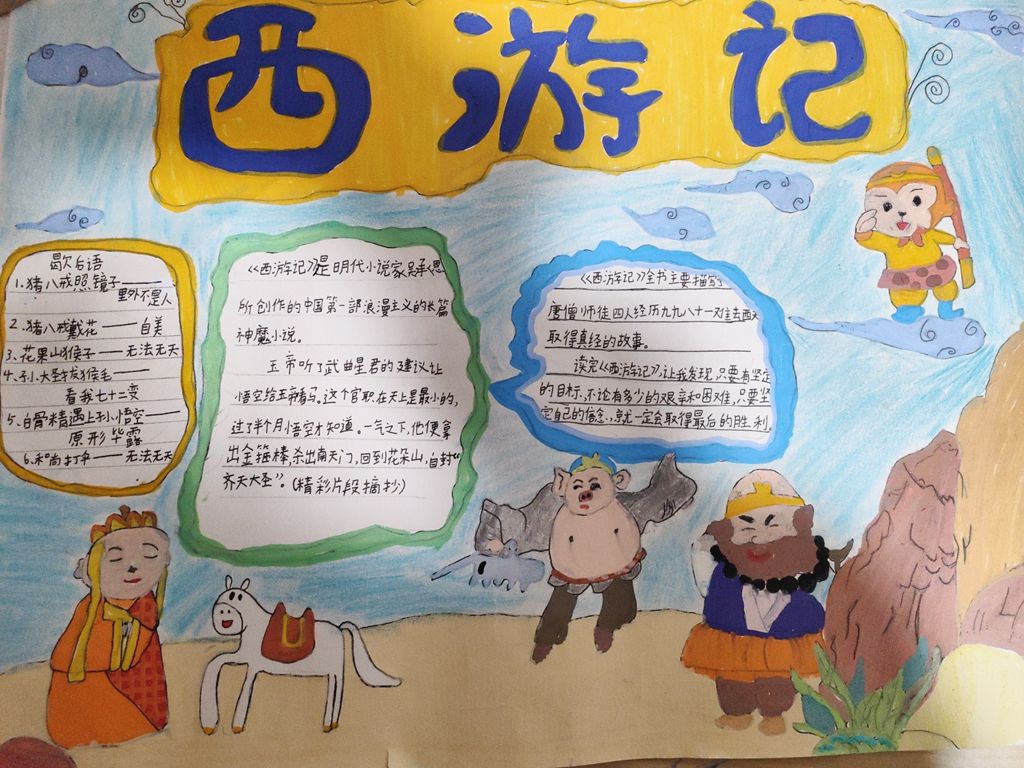 西游记
歇后语
1.猪八戒照镜子——
里外不是人
2.猪八戒戴花——自美
3.花果山猴子——无法无天
4.孙大圣拔猴毛——
看我七十二变
5.白骨精遇上孙悟空——
原形毕露
6.和尚打伞——无法无天
《西游记》是明代小说家吴承恩
所创作的中国第一部浪漫主义的长篇
神魔小说。
玉帝听了武曲星君的建议让
悟空给玉帝看马。这个官职在天上是最小的,
过了半月悟空才知道。一气之下,他便拿
出金箍棒,杀出南天门,回到花朵山,自封“
齐天大圣”。(精彩片段摘抄)
《西游记》全书主要描写了
唐僧师徒四人经历九九八十一难去西天
取得真经的故事。
读完《西游记》,让我发现,只要有坚定
的目标,不论有多少的艰辛和困难,只要坚
定自己的信念,就一定会取得最后的胜利.